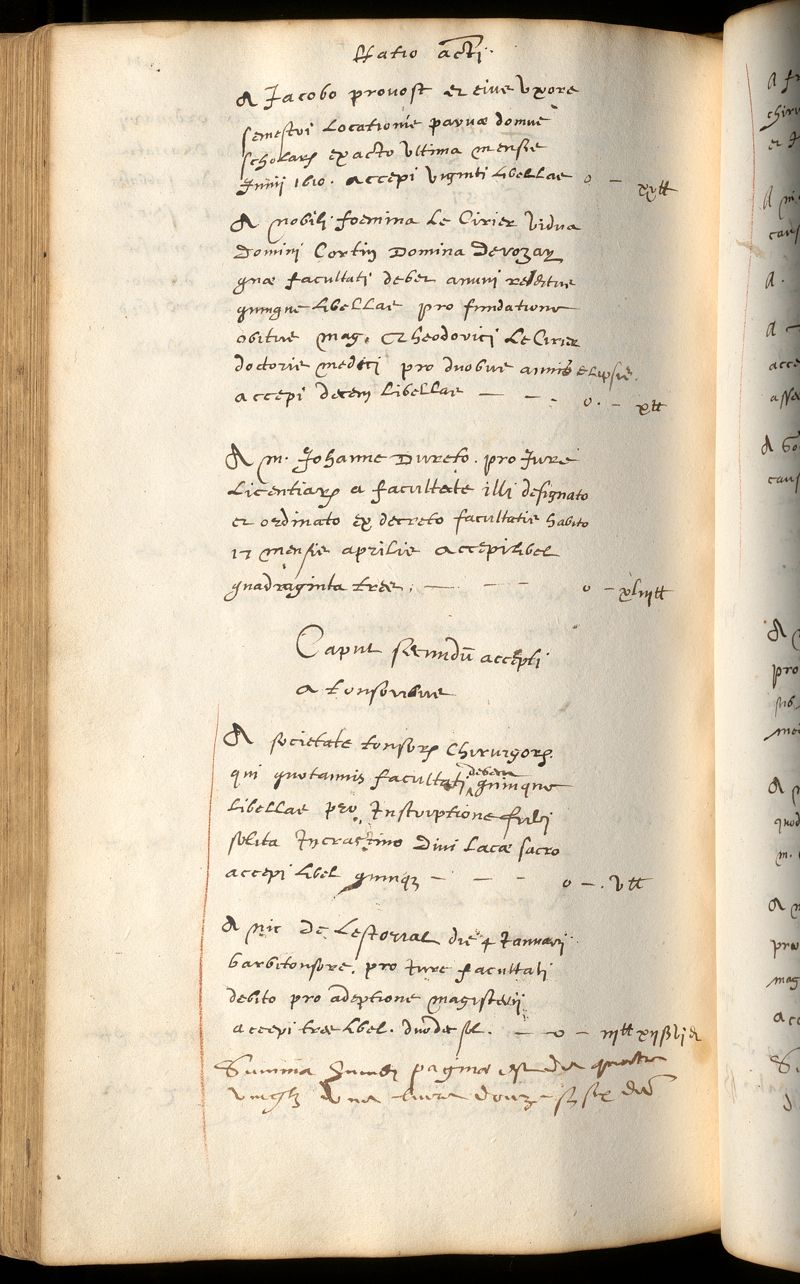 Ratio acti
A Jacobo provost et eius uxore
semestri locationis parvae domus
scholarum exacto ultima mensis
Junii 1610. accepi viginti libellas o — xx tt
A nobili foemina Le Cirier vidua
Domini Cortin Domina Devozay
quae facultati debet annui reditus
quinque libellas pro fundatione
obitus mag. Theodorici Le Cirier
doctoris medici pro duobus annis elapsis.
accepi decem libellas — — - o. — x tt
A m. Johanne Dureto. pro Jure
Licentiarum a facultate illi designato
et ordinato ex decreto facultatis habito
17 mensis aprilis accepi libel
quadraginta tres. — — — o — xliii tt
Caput secundū accepti
a tonsoribus
A societate tonsorum Chirurgorum.
qui quotannis facultati debent quinque
libellas pro Inscriptione
solita In crastino divi Lucae sacro
accepi libel quinque — — — o —. v tt
A nic de Lestorial die 4 Januarii
barbitonsore. pro Jure facultati
debito pro adeptione magisterii
accepi tres libel. duode sol. — o — iii tt xii ß
Summa paginae est quatre
vingtz une livre douze sz six